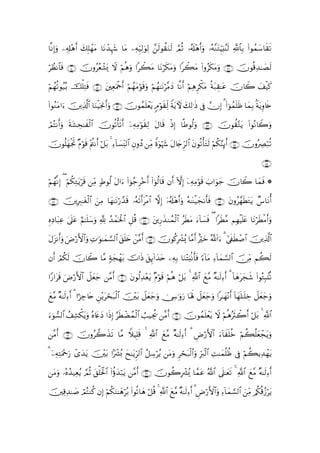 تَقَاسَمُوا۟ بِٱللَّهِ لَنُبَيِّتَنَّهُۥ وَأَهْلَهُۥ ثُمَّ لَنَقُولَنَّ لِوَلِيِّهِۦ مَا شَهِدْنَا مَهْلِكَ أَهْلِهِۦ وَإِنَّا
لَصَٰدِقُونَ ﴿٤٩﴾ وَمَكَرُوا۟ مَكْرًا وَمَكَرْنَا مَكْرًا وَهُمْ لَا يَشْعُرُونَ ﴿٥٠﴾ فَٱنظُرْ
كَيْفَ كَانَ عَٰقِبَةُ مَكْرِهِمْ أَنَّا دَمَّرْنَٰهُمْ وَقَوْمَهُمْ أَجْمَعِينَ ﴿٥١﴾ فَتِلْكَ بُيُوتُهُمْ
خَاوِيَةًۢ بِمَا ظَلَمُوٓا۟ ۗ إِنَّ فِى ذَٰلِكَ لَءَايَةً لِّقَوْمٍ يَعْلَمُونَ ﴿٥٢﴾ وَأَنجَيْنَا ٱلَّذِينَ ءَامَنُوا۟
وَكَانُوا۟ يَتَّقُونَ ﴿٥٣﴾ وَلُوطًا إِذْ قَالَ لِقَوْمِهِۦٓ أَتَأْتُونَ ٱلْفَٰحِشَةَ وَأَنتُمْ
تُبْصِرُونَ ﴿٥٤﴾ أَئِنَّكُمْ لَتَأْتُونَ ٱلرِّجَالَ شَهْوَةً مِّن دُونِ ٱلنِّسَآءِ ۚ بَلْ أَنتُمْ قَوْمٌ تَجْهَلُونَ
﴿٥٥﴾
۞ فَمَا كَانَ جَوَابَ قَوْمِهِۦٓ إِلَّآ أَن قَالُوٓا۟ أَخْرِجُوٓا۟ ءَالَ لُوطٍ مِّن قَرْيَتِكُمْ ۖ إِنَّهُمْ
أُنَاسٌ يَتَطَهَّرُونَ ﴿٥٦﴾ فَأَنجَيْنَٰهُ وَأَهْلَهُۥٓ إِلَّا ٱمْرَأَتَهُۥ قَدَّرْنَٰهَا مِنَ ٱلْغَٰبِرِينَ ﴿٥٧﴾
وَأَمْطَرْنَا عَلَيْهِم مَّطَرًا ۖ فَسَآءَ مَطَرُ ٱلْمُنذَرِينَ ﴿٥٨﴾ قُلِ ٱلْحَمْدُ لِلَّهِ وَسَلَٰمٌ عَلَىٰ عِبَادِهِ
ٱلَّذِينَ ٱصْطَفَىٰٓ ۗ ءَآللَّهُ خَيْرٌ أَمَّا يُشْرِكُونَ ﴿٥٩﴾ أَمَّنْ خَلَقَ ٱلسَّمَٰوَٰتِ وَٱلْأَرْضَ وَأَنزَلَ
لَكُم مِّنَ ٱلسَّمَآءِ مَآءً فَأَنۢبَتْنَا بِهِۦ حَدَآئِقَ ذَاتَ بَهْجَةٍ مَّا كَانَ لَكُمْ أَن
تُنۢبِتُوا۟ شَجَرَهَآ ۗ أَءِلَٰهٌ مَّعَ ٱللَّهِ ۚ بَلْ هُمْ قَوْمٌ يَعْدِلُونَ ﴿٦٠﴾ أَمَّن جَعَلَ ٱلْأَرْضَ قَرَارًا
وَجَعَلَ خِلَٰلَهَآ أَنْهَٰرًا وَجَعَلَ لَهَا رَوَٰسِىَ وَجَعَلَ بَيْنَ ٱلْبَحْرَيْنِ حَاجِزًا ۗ أَءِلَٰهٌ مَّعَ
ٱللَّهِ ۚ بَلْ أَكْثَرُهُمْ لَا يَعْلَمُونَ ﴿٦١﴾ أَمَّن يُجِيبُ ٱلْمُضْطَرَّ إِذَا دَعَاهُ وَيَكْشِفُ ٱلسُّوٓءَ
وَيَجْعَلُكُمْ خُلَفَآءَ ٱلْأَرْضِ ۗ أَءِلَٰهٌ مَّعَ ٱللَّهِ ۚ قَلِيلًا مَّا تَذَكَّرُونَ ﴿٦٢﴾ أَمَّن
يَهْدِيكُمْ فِى ظُلُمَٰتِ ٱلْبَرِّ وَٱلْبَحْرِ وَمَن يُرْسِلُ ٱلرِّيَٰحَ بُشْرًۢا بَيْنَ يَدَىْ رَحْمَتِهِۦٓ ۗ
أَءِلَٰهٌ مَّعَ ٱللَّهِ ۚ تَعَٰلَى ٱللَّهُ عَمَّا يُشْرِكُونَ ﴿٦٣﴾ أَمَّن يَبْدَؤُا۟ ٱلْخَلْقَ ثُمَّ يُعِيدُهُۥ وَمَن
يَرْزُقُكُم مِّنَ ٱلسَّمَآءِ وَٱلْأَرْضِ ۗ أَءِلَٰهٌ مَّعَ ٱللَّهِ ۚ قُلْ هَاتُوا۟ بُرْهَٰنَكُمْ إِن كُنتُمْ صَٰدِقِينَ